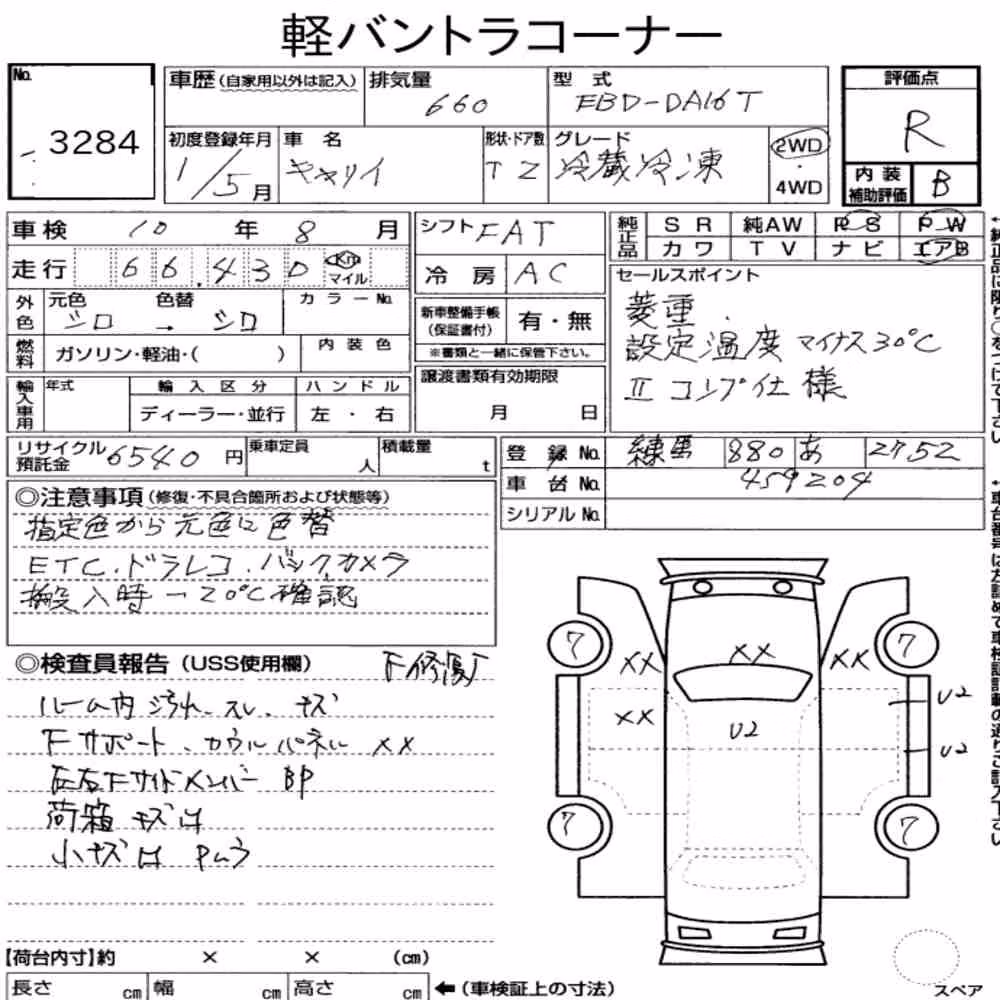 軽バントラコーナー
No. 3284
車歴(自家用以外は記入)
排気量 660
型式 EBD-DA16T
評価点 R
初度登録年月 1/5月
車名 キャリイ
形状・ドア数 T 2
グレード 冷蔵冷凍
2WD・4WD
内装補助評価 B
車検 10年8月
シフト FAT
純正品 SR 純AW PS PW
カワ TV ナビ エアB
走行 66.430 Km マイル
冷房 AC
セールスポイント
菱重.
設定温度マイナス30℃
Ⅱコンプ仕様
外色 元色 シロ → 色替 シロ
カラーNo.
新車整備手帳(保証書付) 有・無
※書類と一緒に保管下さい。
燃料 ガソリン・軽油・( )
内装色
譲渡書類有効期限
月 日
輸入車用 年式 輸入区分 ハンドル
ディーラー・並行 左・右
リサイクル預託金 6540円
乗車定員 人
積載量 t
登録No. 練馬 880 あ 2752
車台No. 459204
シリアルNo.
◎注意事項(修復・不具合箇所および状態等)
指定色から元色に色替
ETC.ドラレコ.バックカメラ
搬入時-20℃確認
◎検査員報告(USS使用欄) F修復
ルーム内汚れ.スレ.キズ
Fサポート.カウルパネル XX
左右FサイドメンバーBP
荷箱キズ凹
小キズ凹 Pムラ
7 7
XX XX XX
XX U2 U2
U2
7 7
【荷台内寸】約 × × (cm)
長さ cm 幅 cm 高さ cm ←(車検証上の寸法)
スペア